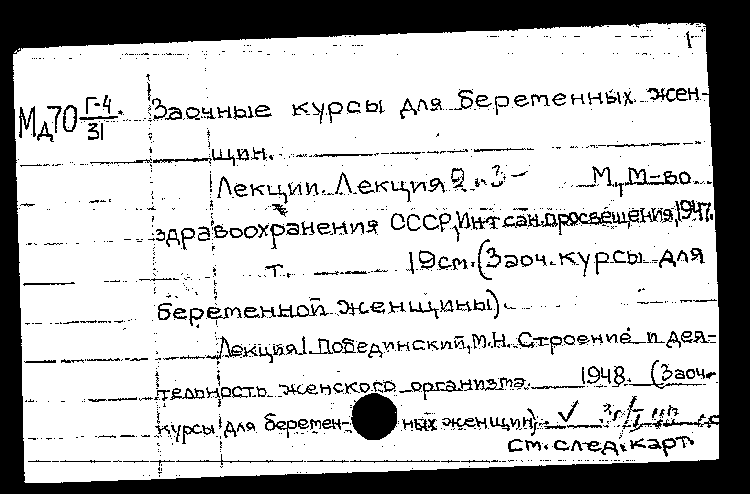 1
Мд70 Г-4. Заочные курсы для беременных жен-
31
щин.
Лекции. Лекция 2 и 3- М., М-во
здравоохранения СССР, Ин-т сан. просвещения, 1947.
т. 19см. (Заоч. курсы для
беременной женщины).
Лекция 1. Побединский, М.Н. Строение и дея-
тельность женского организма. 1948. (Заоч.
курсы для беремен- ных женщин). ✓
см. след. карт.